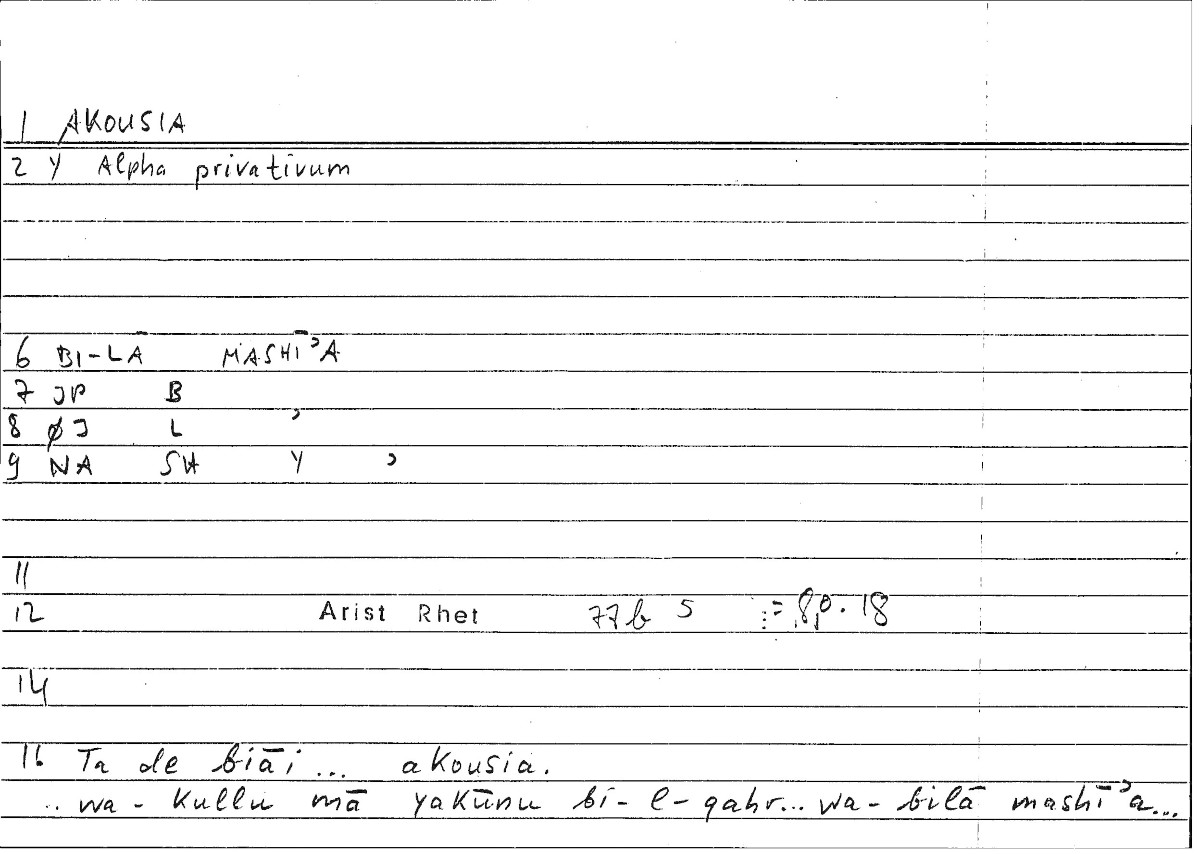 1 AKOUSIA
2 Y Alpha privativum
6 BI-LĀ MASHĪʾA
7 JP B
8 ØJ L ʾ
9 NA SH Y ʾ
11
12 Arist Rhet 77b 5 := 80.18
14
16 Ta de biāi ... akousia.
... wa-kullu mā yakūnu bi-l-qahr... wa-bilā mashīʾa...